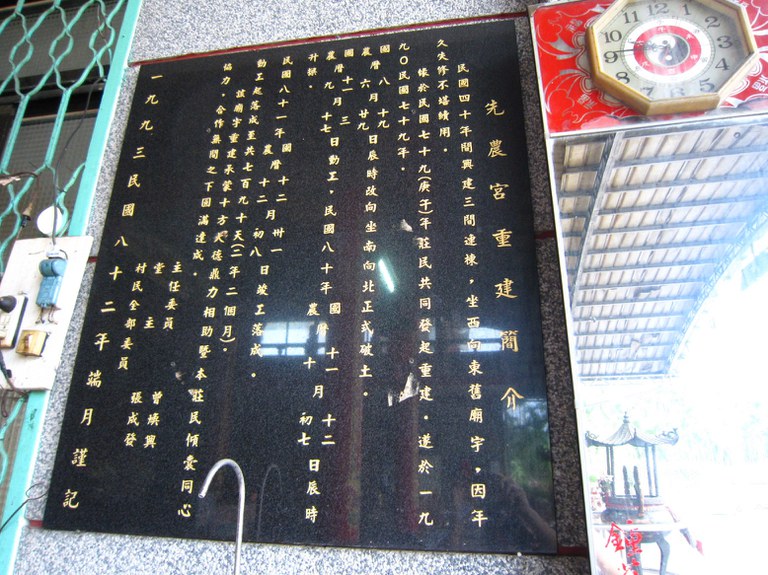 先農宮重建簡介
民國四十年間興建三間連棟，坐西向東舊廟宇，因年
久失修不堪續用。
緣於民國七十九(庚午)年莊民共同發起重建。遂於一九
九〇民國七十九年。
國 八 十九
農曆 六月 廿九 日辰時改向坐南向北正式破土。
國 十一 三
農曆 九月 十七 日動工，民國八十年 國曆 十一 十二
農曆 十月 初七 日辰時
升樑。
民國八十一年國曆十二月卅一
農 十二 初八 日竣工落成。
動工起落成至共七百九十天(二年二個月)。
該廟宇重建承蒙十方天德鼎力相助暨本莊民傾囊同心
協力。合作無間之下圓滿達成。
主任委員
堂主 曾煥興
村民全部委員 張成發
一九九三民國八十二年端月謹記
12 1 2 3 4 5 6 7 8 9 10 11
鐘